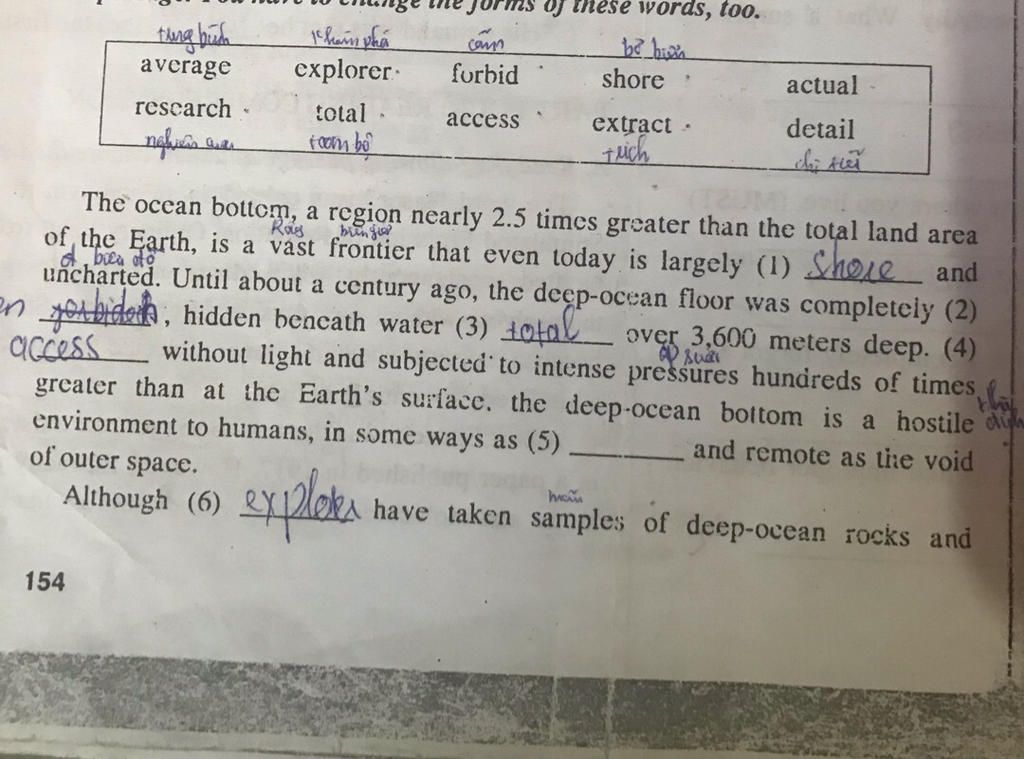 to change the forms of these words, too.
trung bình khám phá cấm bờ biển
average explorer forbid shore actual
research total access extract detail
nghiên cứu toàn bộ trích chi tiết
The ocean bottom, a region nearly 2.5 times greater than the total land area
Rộng biên giới
of the Earth, is a vast frontier that even today is largely (1) shore and
uncharted. Until about a century ago, the deep-ocean floor was completely (2)
, hidden beneath water (3) total over 3,600 meters deep. (4)
access without light and subjected to intense pressures hundreds of times
greater than at the Earth's surface. the deep-ocean bottom is a hostile
environment to humans, in some ways as (5) ________ and remote as the void
of outer space.
mẫu
Although (6) have taken samples of deep-ocean rocks and
154